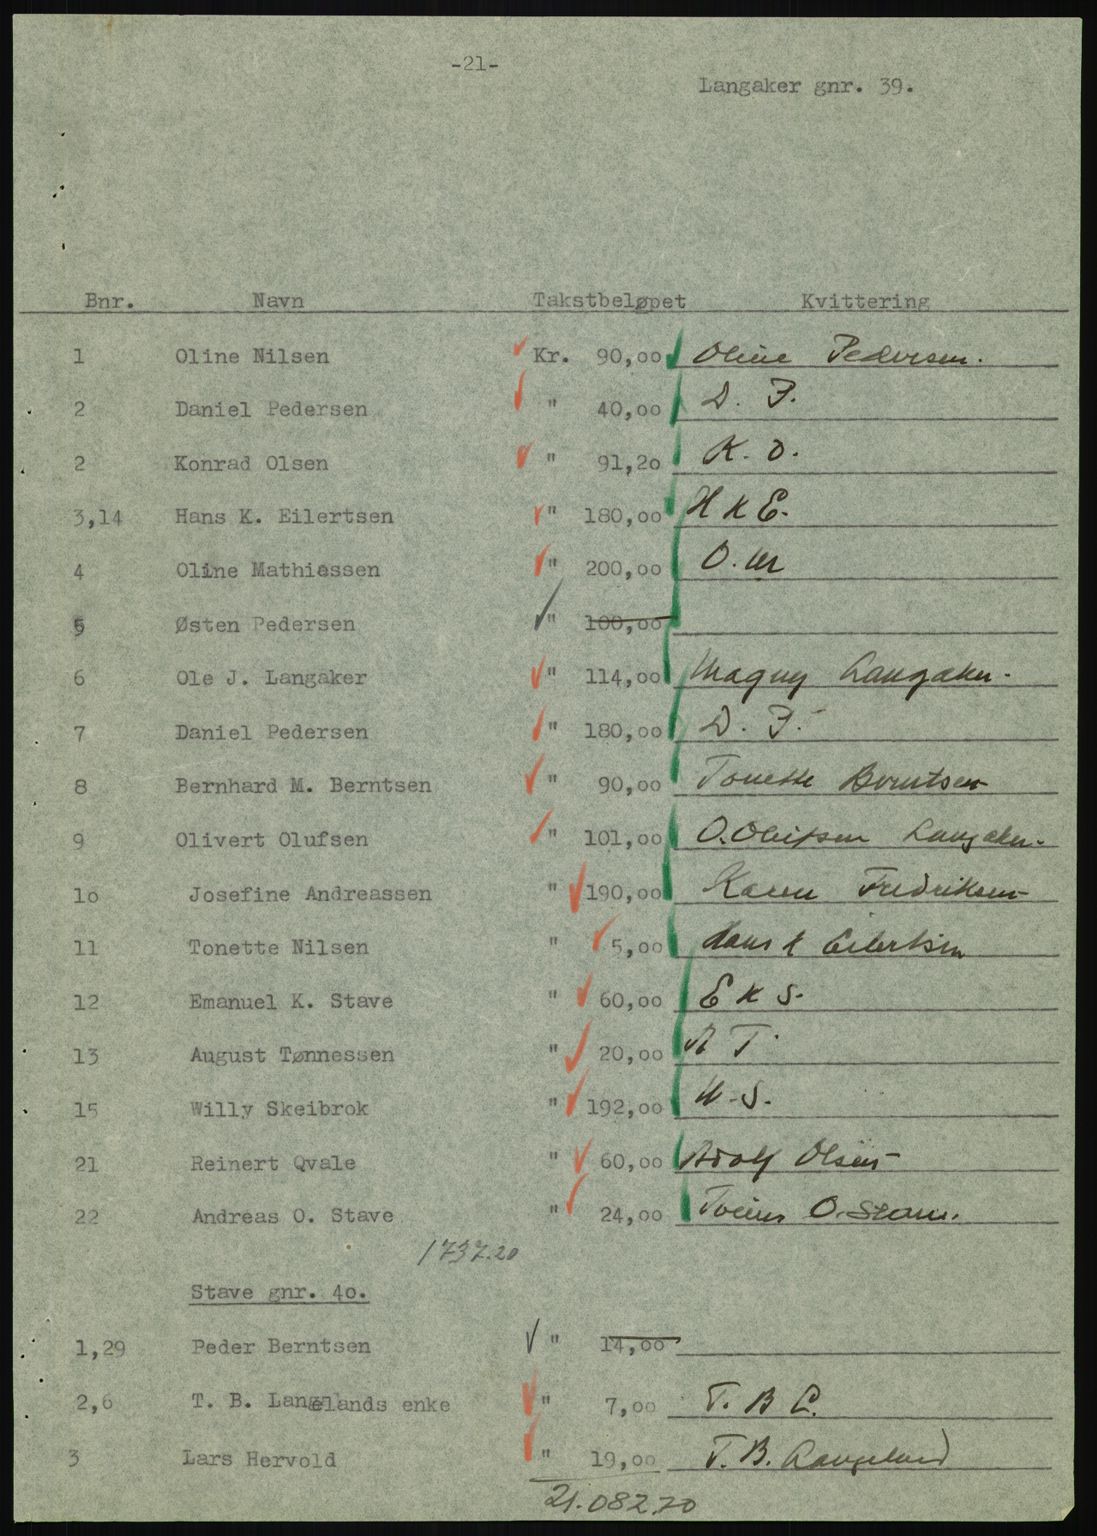 -21-
Langaker gnr. 39.
Bnr. Navn Takstbeløpet Kvittering
1 Oline Nilsen Kr. 90,oo Oline Pedersen.
2 Daniel Pedersen " 40,oo D. P.
2 Konrad Olsen " 91,2o K. O.
3,14 Hans K. Eilertsen " 180,oo H K E.
4 Oline Mathiassen " 200,oo O. M
5 Østen Pedersen " 100,oo
6 Ole J. Langaker " 114,oo Magny Langaker.
7 Daniel Pedersen " 180,oo D. P.
8 Bernhard M. Berntsen " 90,oo Tonette Berntsen
9 Olivert Olufsen " 101,oo O. Olufsen Langaker.
1o Josefine Andreassen " 190,oo Karen Fredriksen
11 Tonette Nilsen " 5,oo Hans K Eilertsen
12 Emanuel K. Stave " 60,oo E K S.
13 August Tønnessen " 20,oo A T.
15 Willy Skeibrok " 192,oo W. S.
21 Reinert Qvale " 60,oo Adolf Olsen
22 Andreas O. Stave " 24,oo O. Stave.
1737.20
Stave gnr. 4o.
1,29 Peder Berntsen " 14,oo
2,6 T. B. Langelands enke " 7,oo T. B L.
3 Lars Hervold " 19,oo T. B. Langeland
21.082,70